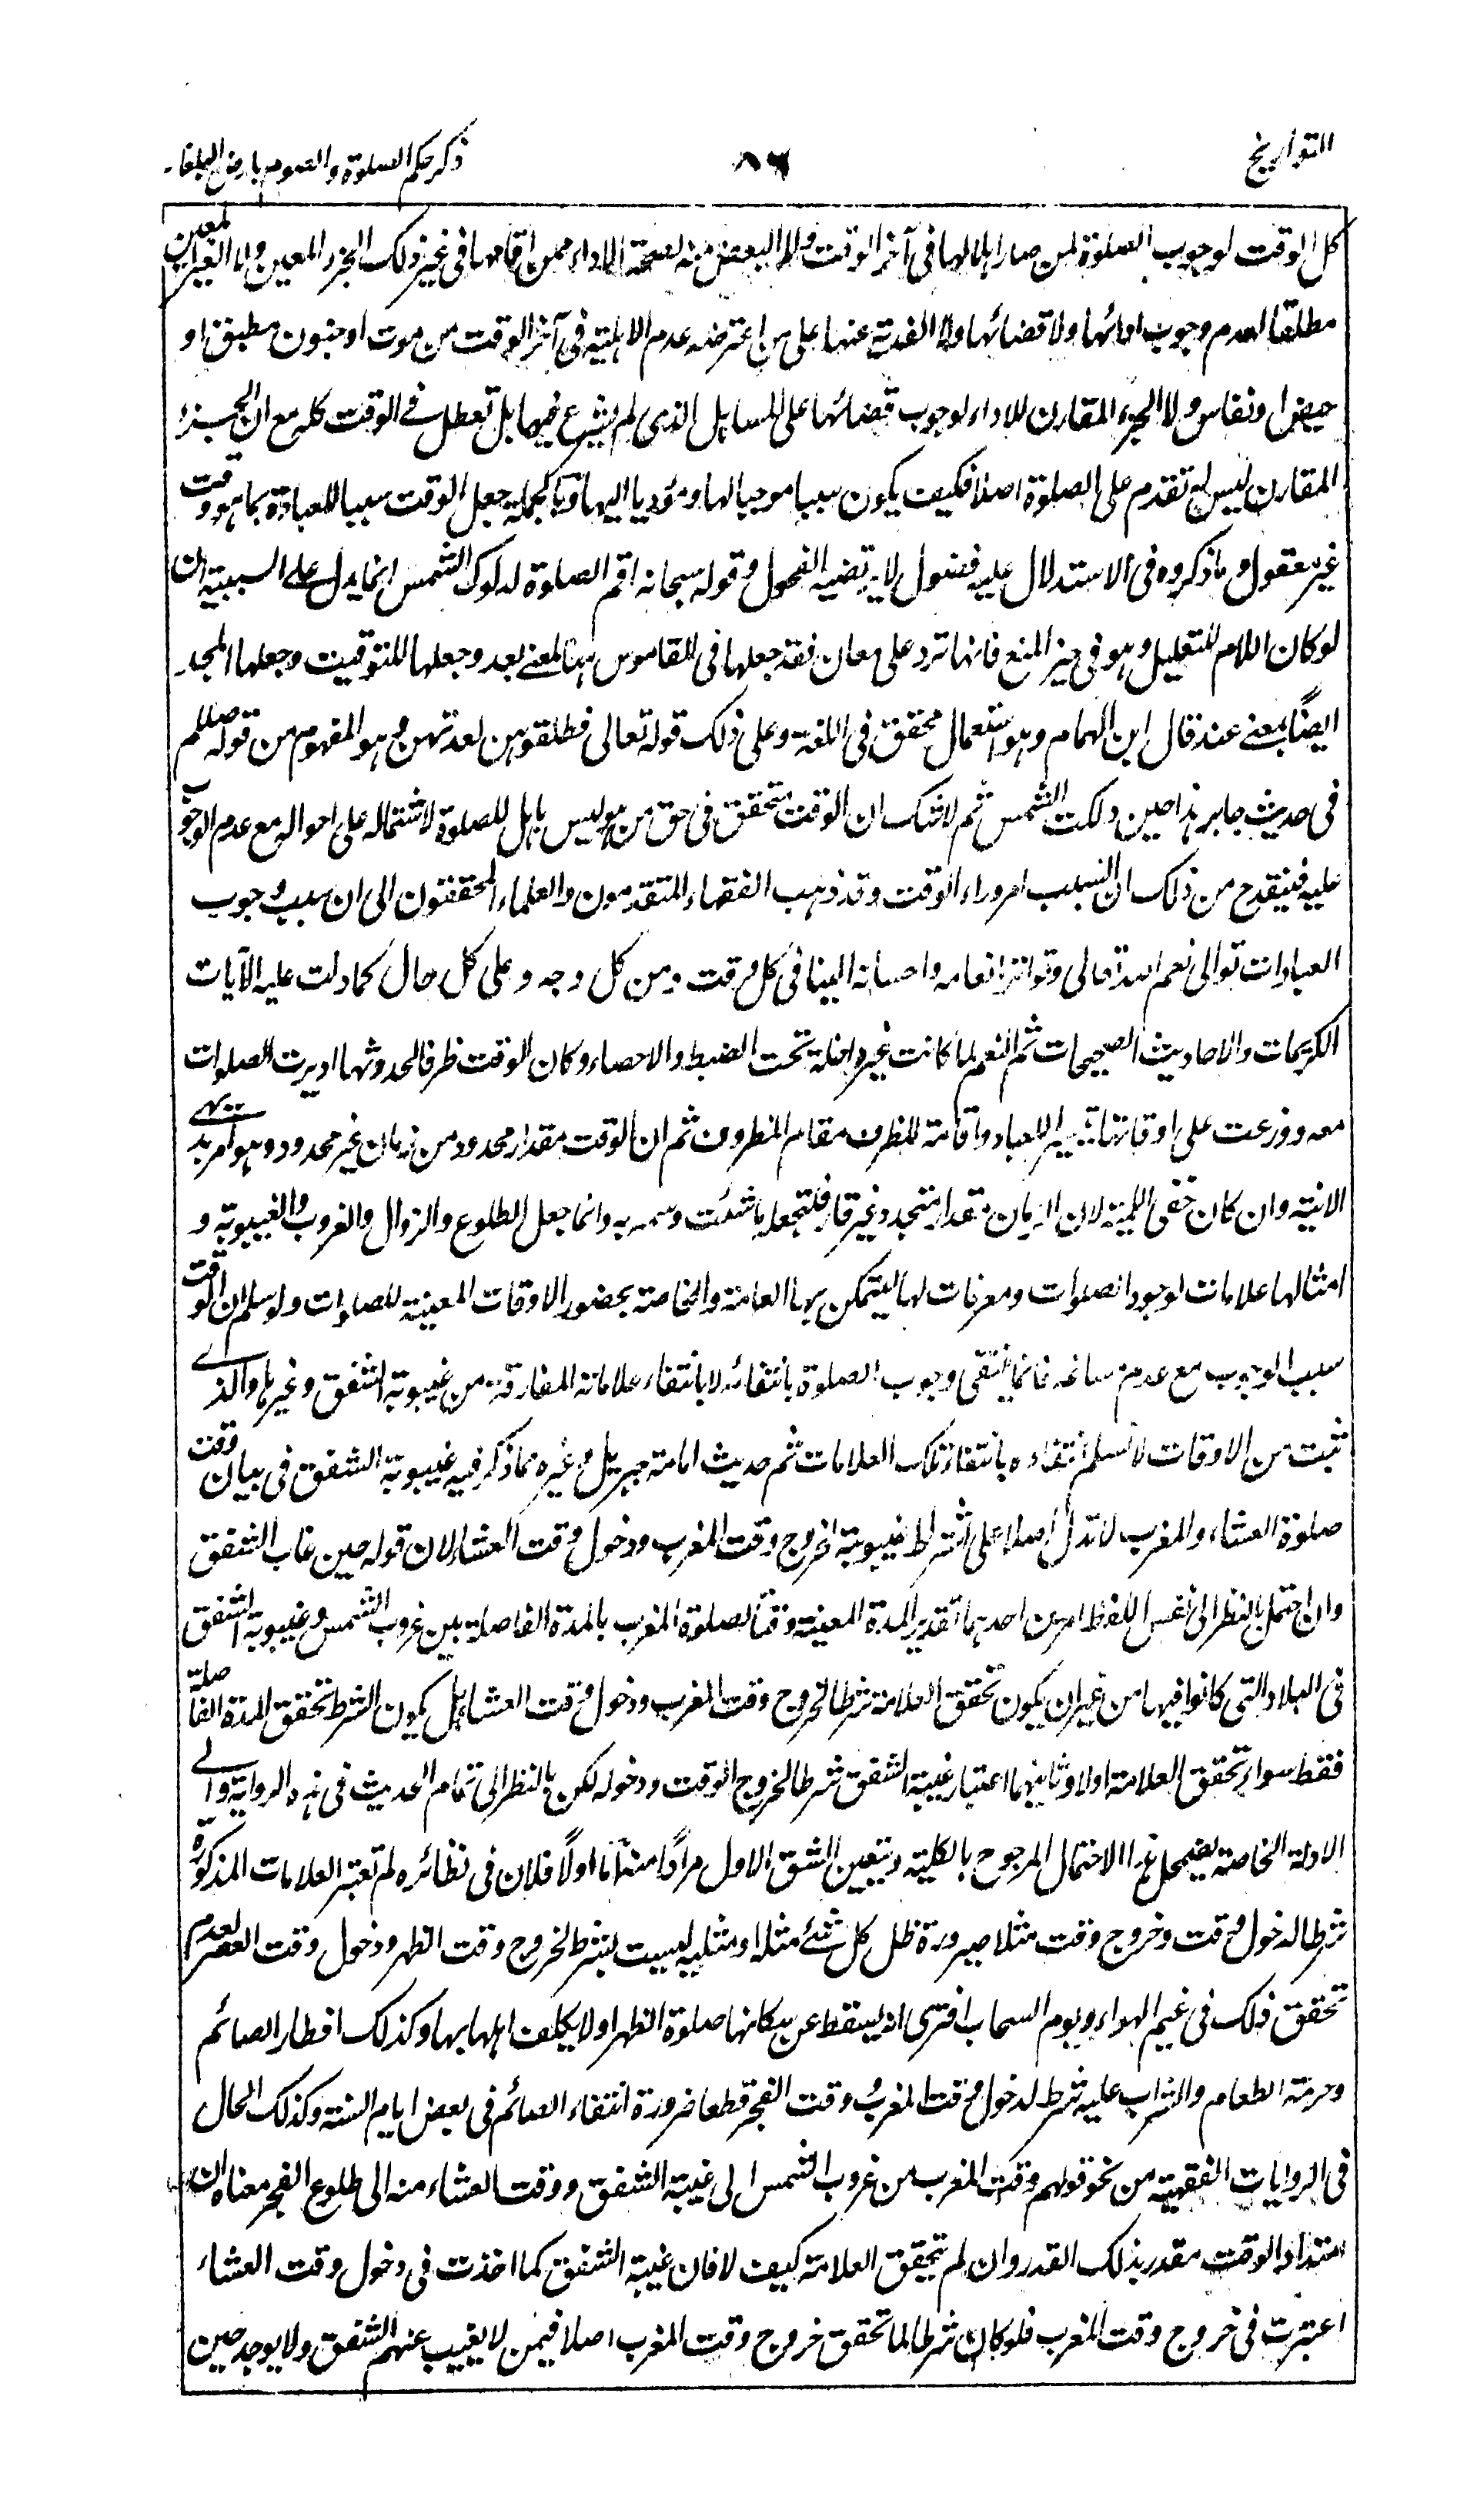 التواريخ
٨٦
ذكر حكم الصلوة والصوم بارض البلغار
كل الوقت لوجوب الصلوة لمن صار اهلا لها في آخر الوقت ولا البعض منه لصحة الاداء ممن اقامها في غير ذلك الجزء المعين ولا الغير المعين
مطلقا لعدم وجوب ادائها ولا قضائها ولا الفدية عنها على من اعترضه عدم الاهلية في آخر الوقت من موت او جنون مطبق او
حيض او نفاس ولا الجزء المقارن للاداء لوجوب قضائها على المساهل الذى لم يشرع فيها بل تعطل فے الوقت كله مع ان الجزء
المقارن ليس له تقدم على الصلوة اصلا فكيف يكون سببا موجبا لها ومؤديا اليها وبالجملة جعل الوقت سببا للعبادة بما هو وقت
غير معقول وما ذكروه فى الاستدلال عليه فضول لا يرتضيه الفحول وقوله سبحانه اقم الصلوة لدلوك الشمس انما يدل على السببية ان
لو كان اللام للتعليل وهو فى حيز المنع فانها ترد على معان فقد جعلها فى القاموس هنا بمعنے بعد وجعلها للتوقيت وجعلها المجد
ايضًا بمعنے عند قال ابن الهمام وهو استعمال محقق فى اللغة وعلى ذلك قوله تعالى فطلقوهن لعدتهن وهو المفهوم من قوله صلعم
فى حديث جابر هذا حين دلكت الشمس ثم لا شك ان الوقت متحقق فى حق من هو ليس باهل للصلوة لاشتماله على احواله مع عدم الوجوب
عليه فينقدح من ذلك ان السبب امر وراء الوقت وقد ذهب الفقهاء المتقدمون والعلماء المحققون الى ان سبب وجوب
العبادات توالى نعم الله تعالى وتواتر انعامه واحسانه الينا فى كل وقت ومن كل وجه وعلى كل حال كما دلت عليه الآيات
الكريمات والاحاديث الصحيحات ثم النعم لما كانت غير داخلة تحت الضبط والاحصاء وكان الوقت ظرفا لحدوثها اديرت الصلوات
معه ووزعت على اوقاتها تيسيرا للعباد واقامة للظرف مقام المظروف ثم ان الوقت مقدار محدود من زمان غير محدود وهو امر بديهے
الانية وان كان خفى اللمية لان الزمان مقدار متجدد غير قار فلتجعله ما شئت وسمه به وانما جعل الطلوع والزوال والغروب والغيبوبة و
امثالها علامات لوجود الصلوات ومعرفات لها ليتمكن بها العامة والخاصة بحضور الاوقات المعينة للصلوات ولو سلم ان الوقت
سبب الوجوب مع عدم مساغه فانما ينتفى وجوب الصلوة بانتفائه لا بانتفاء علاماته المفارقة من غيبوبة الشفق وغيرها والذے
ثبت من الاوقات لا نسلم انتفاءه بانتفاء تلك العلامات ثم حديث امامة جبريل وغيره مما ذكر فيه غيبوبة الشفق فى بيان وقت
صلوة العشاء والمغرب لا تدل اصلا على اشتراط غيبوبة لخروج وقت المغرب ودخول وقت العشاء لان قوله حين غاب الشفق
وان احتمل بالنظر الى نفس اللفظ امرين احدهما تقدير المدة المعينة وقتًا لصلوة المغرب بالمدة الفاصلة بين غروب الشمس وغيبوبة الشفق
فى البلاد التى كانوا فيها من غير ان يكون تحقق العلامة شرطا لخروج وقت المغرب ودخول وقت العشا بل يكون الشرط تحقق المدة الفاصلة
فقط سواء تحقق العلامة اولا وثانيهما اعتبار غيبة الشفق شرطا لخروج الوقت ودخوله لكن بالنظر الى تمام الحديث فى هذه الرواية والے
الادلة الخاصة يضمحل هذا الاحتمال المرجوح بالكلية ويتعين الشق الاول مرادًا منه اما اولًا فلان فى نظائره لم تعتبر العلامات المذكورة
شرطا لدخول وقت وخروج وقت مثلا صيرورة ظل كل شئ مثله او مثليه ليست بشرط لخروج وقت الظهر ودخول وقت العصر لعدم
تحقق ذلك فى غيم الهواء ويوم السحاب افترى انه يسقط عن سكانها صلوة الظهر او لا يكلف اهلها بها وكذلك افطار الصائم
وحرمة الطعام والشراب عليه شرط لدخول وقت المغرب ووقت الفجر قطعا ضرورة انتفاء الصائم فى بعض ايام السنة وكذلك الحال
فى الروايات الفقهية من نحو قولهم وقت المغرب من غروب الشمس الى غيبة الشفق ووقت العشاء منه الى طلوع الفجر معناه ان
امتداد الوقت مقدر بذلك القدر وان لم تتحقق العلامة كيف لا فان غيبة الشفق كما اخذت فى دخول وقت العشاء
اعتبرت فى خروج وقت المغرب فلو كان شرطا لما تحقق خروج وقت المغرب اصلا فيمن لا يغيب عنهم الشفق ولا يوجد حين